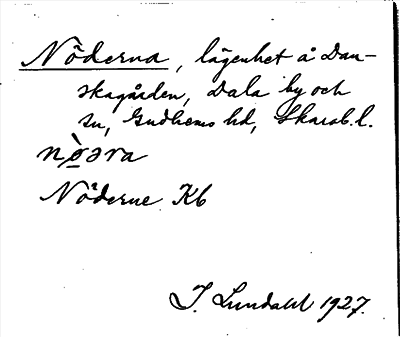 Nöderna, lägenhet å Dan-
skagården, Dala by och
sn, Gudhems hd, Skarab. l.
nø̀əra
Nöderne Kb
I. Lundahl 1927.